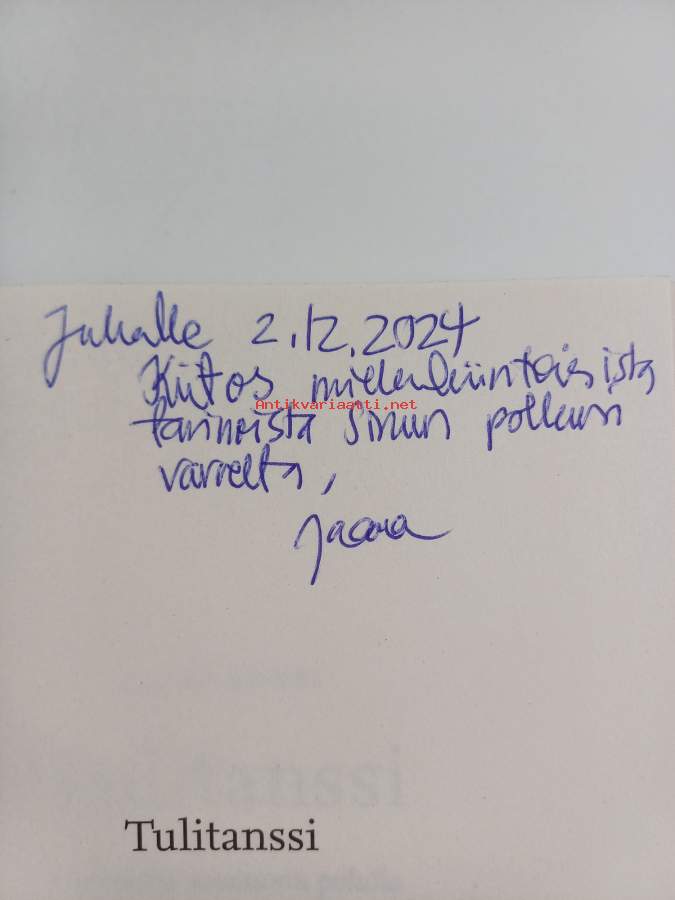 Juhalle 2.12.2024
Kiitos mielenkiintoisista
Antikvariaatti.net
tarinoista sinun polkusi
varrelta,
Jaana
Tulitanssi